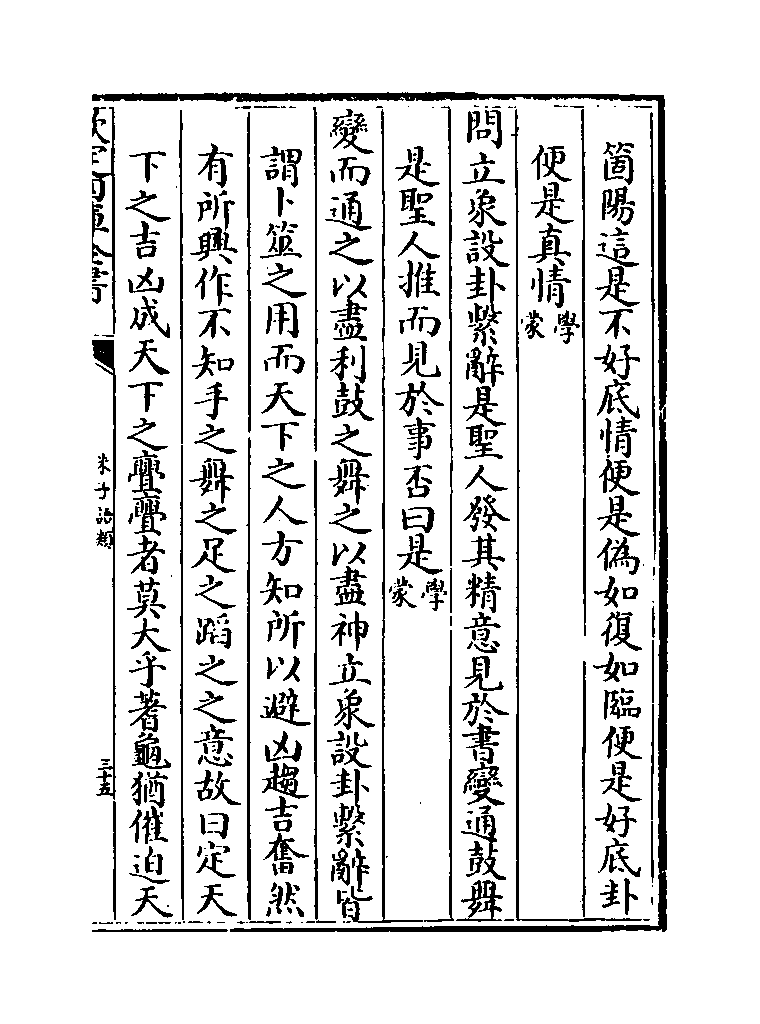 箇陽這是不好底情便是偽如復如臨便是好底卦
便是真情學蒙
問立象設卦繫辭是聖人發其精意見於書變通鼓舞
是聖人推而見於事否曰是學蒙
變而通之以盡利鼓之舞之以盡神立象設卦繫辭皆
謂卜筮之用而天下之人方知所以避凶趨吉奮然
有所興作不知手之舞之足之蹈之之意故曰定天
下之吉凶成天下之亹亹者莫大乎蓍龜猶催迫天
欽定四庫全書
朱子語類
三十五